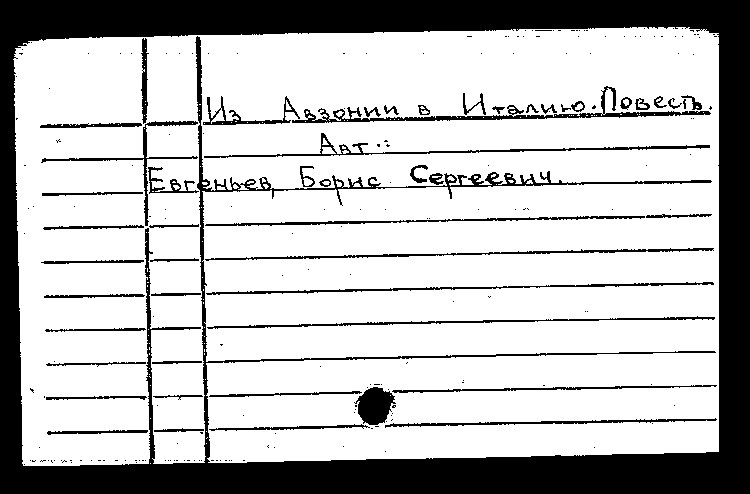 Из Авзонии в Италию. Повесть.
Авт.:
Евгеньев, Борис Сергеевич.